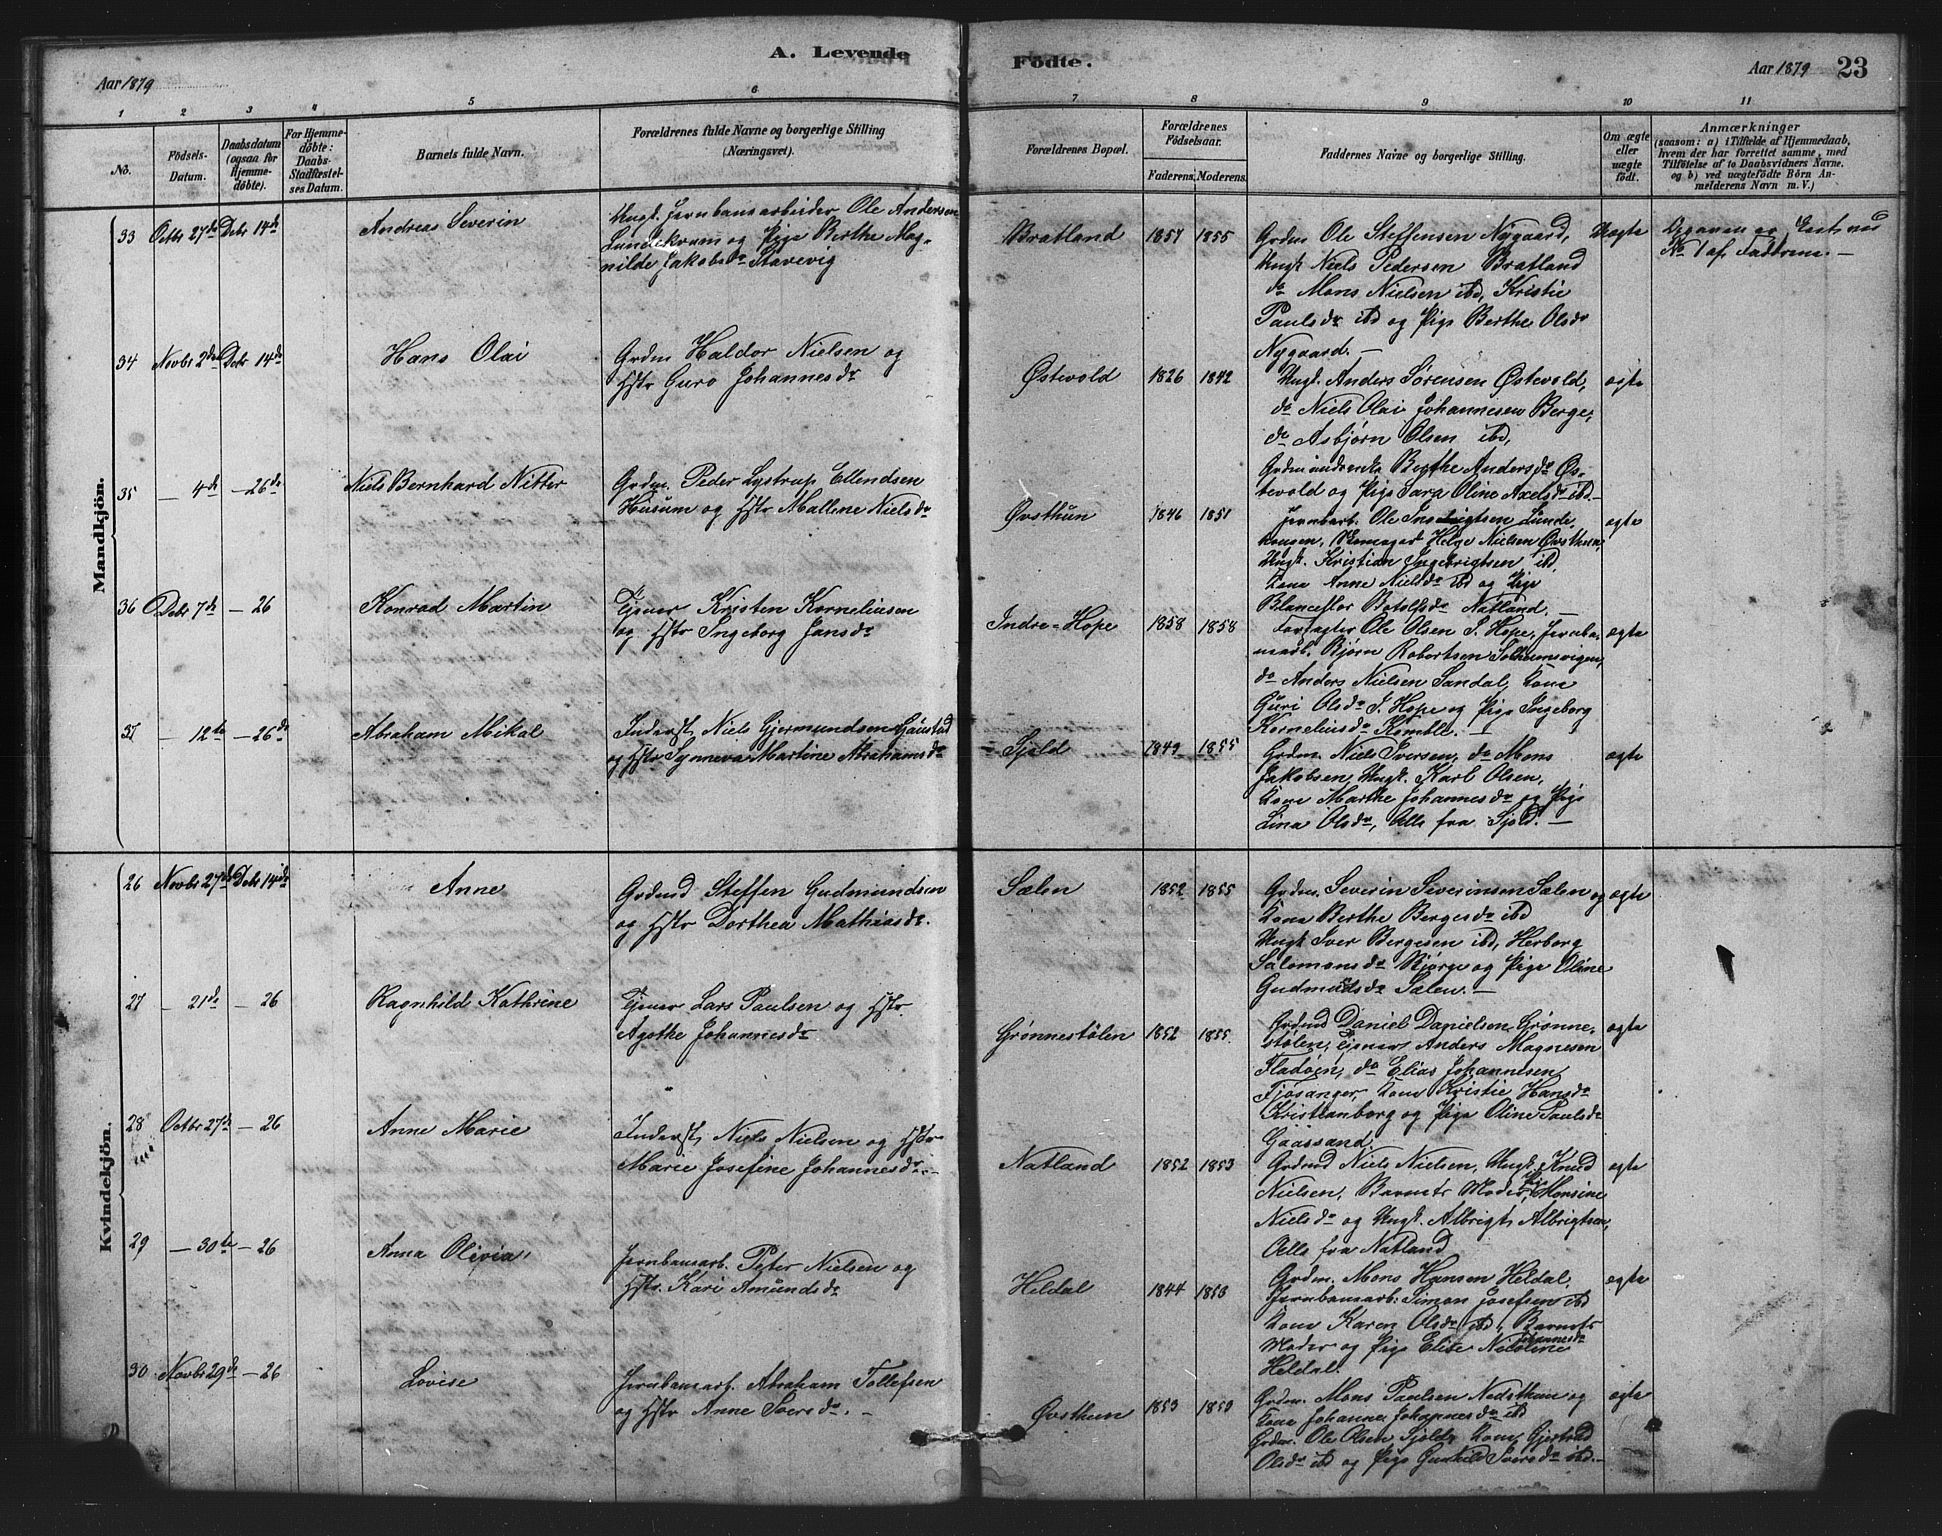 Aar 1879
A. Levende
1 2 3 4 5 6
No.
Födsels-Datum.
Daabsdatum (ogsaa for Hjemme-döbte).
For Hjemme-döbte: Daabs-Stadfæstel-ses Datum.
Barnets fulde Navn.
Forældrenes fulde Navne og borgerlige Stilling (Næringsvei).
Mandkjön.
33 Octbr 27de Debr 14de Andreas Severin Ungk. Jernbanearbeider Ole Andersen
Lundekvam og Pige Berthe Mag-
nilde Jakobsdr Stavevig
34 Novbr 2de Debr 14de Hans Olai Grdm Haldor Nielsen og
Hstr Guro Johannesdr
35 — 4de — 26de Niels Bernhard Nitter Grdm. Peder Lystrup Ellendsen
Husum og Hstr Mallene Nielsdr
36 Debr 7de — 26 Konrad Martin Tjener Kristen Korneliusen
og Hstr Ingeborg Jansdr
37 — 12te — 26de Abraham Mikal Inderst, Niels Gjermundsen Gaustad
og Hstr Synneva Martine Abrahamsdr
Kvindekjön.
26 Novbr 27de Debr 14de Anne Grdmd Steffen Gudmundsen
og Hstr Dorthea Mathiasdr.
27 — 21de — 26 Ragnhild Kathrine Tjener Lars Paulsen og Hstr
Agathe Johannesdr
28 Octbr 27de — 26 Anne Marie Inderst, Niels Nielsen og Hstr
Marie Josefine Johannesdr. —
29 — 30te — 26 Anna Olivia Jernbanearb. Peter Nielsen og
Hstr. Kari Amundsdr
30 Novbr 29de — 26 Lovise Jernbanearb. Abraham Tollefsen
og Hstr Anne Iversdr. —
Födte.
Aar 1879 23
7 8 9 10 11
Forældrenes Bopæl.
Forældrenes Födselsaar.
Faderens. Moderens.
Faddernes Navne og borgerlige Stilling.
Om ægte eller uægte födt.
Anmærkninger
(saasom: a) i Tilfælde af Hjemmedaab,
hvem der har forrettet samme, med
Tilföielse af to Daabsvidners Navne,
og b) ved uægtefödte Börn An-
melderens Navn m. V.)
Bratland 1857 1855 Grdm Ole Steffensen Nygaard, Uægte
Ungk Niels Pedersen Bratland
do Mons Nielsen ibd, Kristie
Paulsdr ibd og Pige Berthe Olsdr
Nygaard. —
No 1 af Fadderne. —
Østevold 1826 1842 Ungk. Anders Sørensen Østevold, ægte
do Niels Olai Johannesen Berge,
do Asbjørn Olsen ibd,
Berthe Andersdr Øs-
tevold og Pige Sara Oline Axelsdr ibd. —
Øvsthun 1846 1851 Jernbarb. Ole Lunde- ægte
Helge Nielsen Øvsthun,
Ungk. Kristian Ingebrigtsen ibd,
Kone Anne Nielsdr ibd og Pige
Blanceflor Botolfsdr Natland. —
Indre-Hope 1858 1858 Forpagter Ole Olsen I. Hope, Jernba- ægte
nearb. Bjørn Robertsen Solheimsvigen,
do Anders Nielsen Sandal, Kone
Guri Olsdr I. Hope og Pige Ingeborg
Korneliusdr
Sjold 1849 1855 Grdm. Niels Iversen, do Mons ægte
Jakobsen, Ungk. Karl Olsen,
Kone Marthe Johannesdr og Pige
Lina Olsdr, Alle fra Sjold. —
Sælen 1852 1855 Grdm. Severin Severinsen Sælen og ægte
Kone Berthe Bergesdr ibd
Ungk Iver Bergesen ibd, Herborg
Salomonsdr Bjørge og Pige Oline
Gudmundsdr Sælen. —
Grønnestølen 1852 1855 Grdmd Daniel Danielsen Grønne- ægte
stølen, Tjener Anders Magnesen
Fladøen, do Elias Johannesen
Fjøsanger, Kone Kristie Hansdr
Kristianborg og Pige Oline Paulsdr
Gaassand.
Natland 1852 1853 Grdmd Niels Nielsen, Ungk. Knud ægte
Nielsen, Barnets Moder, Pige Monsine
Nielsdr og Ungk. Albrigt Albrigtsen,
Alle fra Natland
Heldal 1844 1853 Grdm. Mons Hansen Heldal, ægte
Jernbanearb: Simon Josefsen ibd
Kone Karen Olsdr ibd, Barnets
Moder og Pige Elise Nicoline Johannesdr
Heldal.
Øvsthun 1853 1850 Grdm. Mons Paulsen Nedsthun og ægte
Kone Johanne Johannesdr ibd
Grdm. Ole Olsen Sjold, Kone Gjertrud
Olsdr ibd og Pige Gunhild Iversdr ibd. —